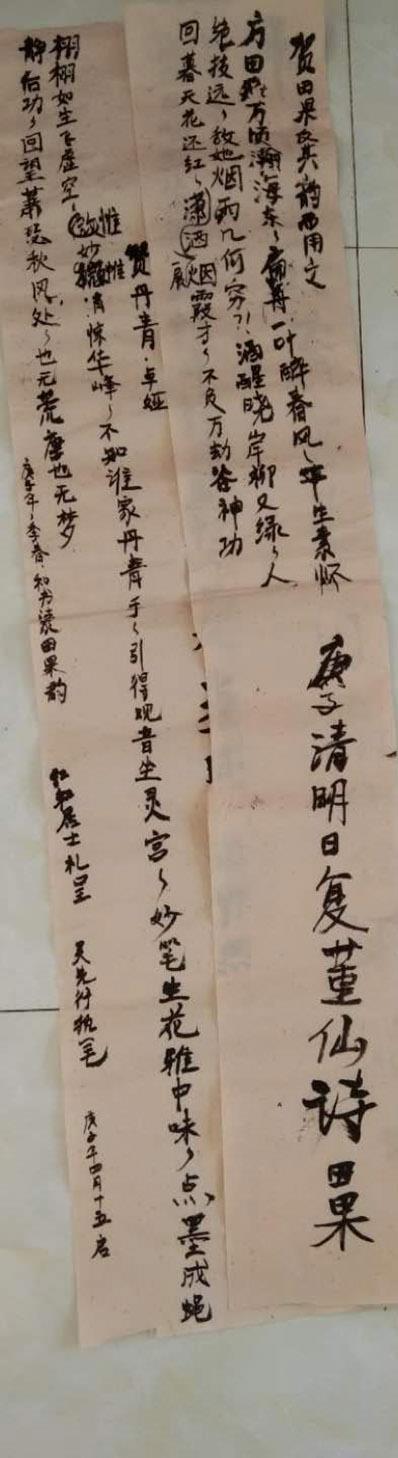 庚子清明日复董仙诗田果
贺田果兄吴韵而用文
方田 万顷瀚海东、扁舟一叶醉春风、半生素怀
绝技远、敢她烟雨几何穷?!酒醒晓岸柳又绿、人
回暮天花还红、潇洒 烟霞才、不负万劫谷神功
贺丹青·卓娅
惟惟妙 肖惊华峰、不知谁家丹青手、引得观音坐灵宫、妙笔生花雅中味、点墨成蝇
栩栩如生飞虚空、
静后功、回望萧瑟秋风、处、也无荒唐也无梦、
庚子年、季春·和为 田果韵
红 居士礼呈 吴先行执笔 庚子年四月十五启